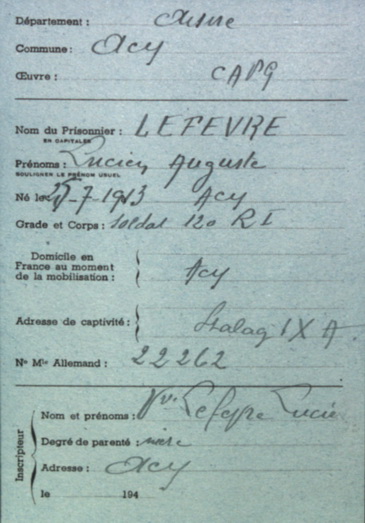 Département : Aisne
Commune : Acy
Œuvre : CAPG
Nom du Prisonnier : LEFEVRE
EN CAPITALES
Prénoms : Lucien Auguste
SOULIGNER LE PRÉNOM USUEL
Né le 25-7-1913 Acy
Grade et Corps : Soldat 120 RI
Domicile en
France au moment
de la mobilisation : Acy
Adresse de captivité : Stalag IX A
Nº Mle Allemand : 22262
Inscripteur
Nom et prénoms : Vve Lefevre Lucie
Degré de parenté : mère
Adresse : Acy
le 194